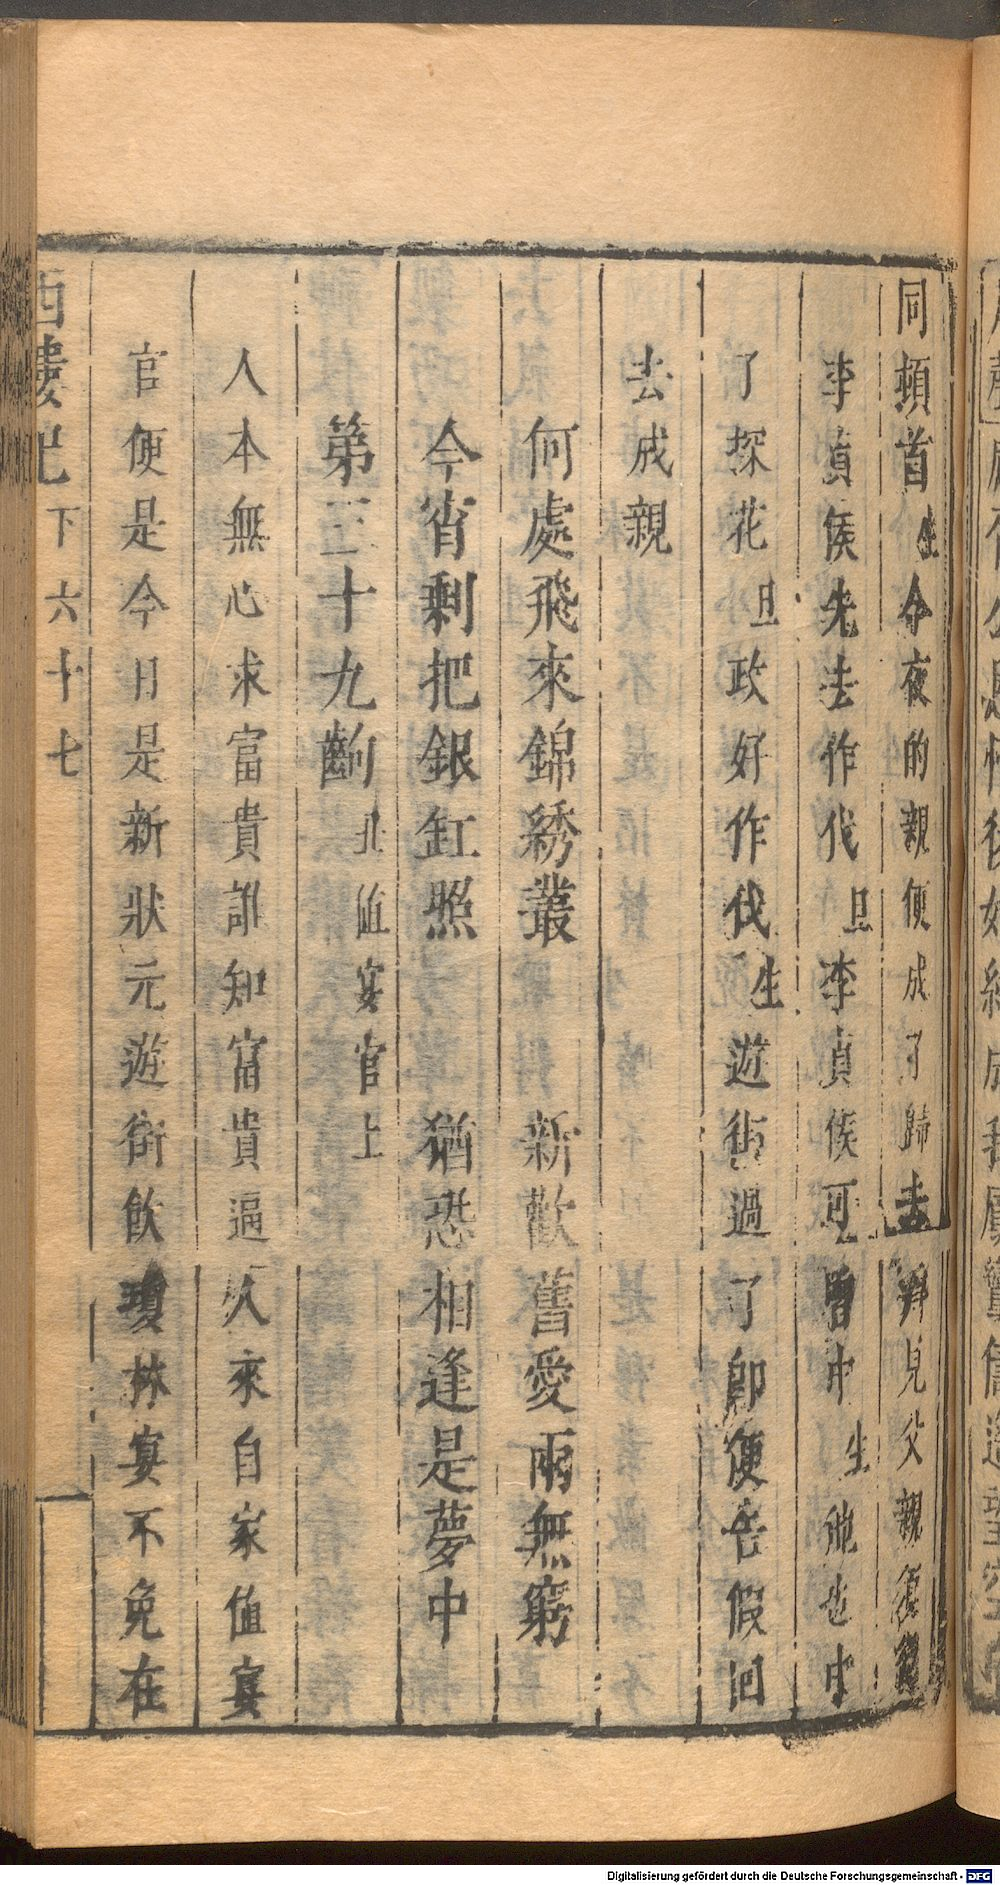 同頓首生今夜的親便成了歸去拜見父親復
李貞侯先去作代旦李貞侯可曾中生他也中
了探花旦政好作伐生遊街過了卽便告假回
去成親
何處飛來錦綉叢　新歡舊愛兩無窮
今宵剩把銀缸照　猶恐相逢是夢中
第三十九齣　丑値宴官上
人本無心求富貴誰知富貴逼人來自家值宴
官便是今日是新狀元遊街飲瓊林宴不免在
西樓記　下　六十七
Digitalisierung gefördert durch die Deutsche Forschungsgemeinschaft - DFG